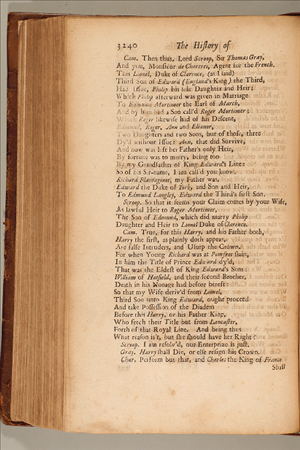 3240 The History of
Cam. Then thus, Lord Scroop, Sir Thomas Gray,
And you, Monsieur de Chartres, Agent for the French,
This Lionel, Duke of Clarence, (as I said)
Third Son of Edward (England's King) the Third,
Had Issue, Philip his sole Daughter and Heir;
Which Philip afterward was given in Marriage
To Edmund Mortimer the Earl of March,
And by him had a Son call'd Roger Mortimer;
Which Roger likewise had of his Descent,
Edmund, Roger, Ann and Eleanor,
Two Daughters and two Sons, but of these, three
Dy'd without Issue: Ann, that did Survive,
And now was left her Father's only Heir,
By fortune was to marry, being too
By my Grandfather of King Edward's Line:
So of his Sir-name, I am call'd you know,
Richard Plantagenet; my Father was,
Edward the Duke of York, and Son and Heir,
To Edmund Langley, Edward the Third's first Son.
Scroop. So that it seems your Claim comes by your Wife,
As lawful Heir to Roger Mortimer,
The Son of Edmund, which did marry Philip
Daughter and Heir to Lionel Duke of Clarence.
Cam. True, for this Harry, and his Father both,
Harry the first, as plainly doth appear,
Are false Intruders, and Usurp the Crown:
For when Young Richard was at Pomfret slain,
In him the Title of Prince Edward dy'd,
That was the Eldest of King Edward's Sons:
William of Hatfield, and their second Brother,
Death in his Nonage had before bereft:
So that my Wife deriv'd from Lionel,
Third Son unto King Edward, might proceed
And take Possession of the Diadem
Before this Harry, or his Father King,
Who fetch their Title but from Lancaster,
Forth of that Royal Line. And being thus
What reason is't, but she should have her Right?
Scroop. I am resolv'd, our Enterprize is just.
Gray. Harry shall Die, or else resign his Crown.
Char. Perform but that, and Charles the King of France
Shall